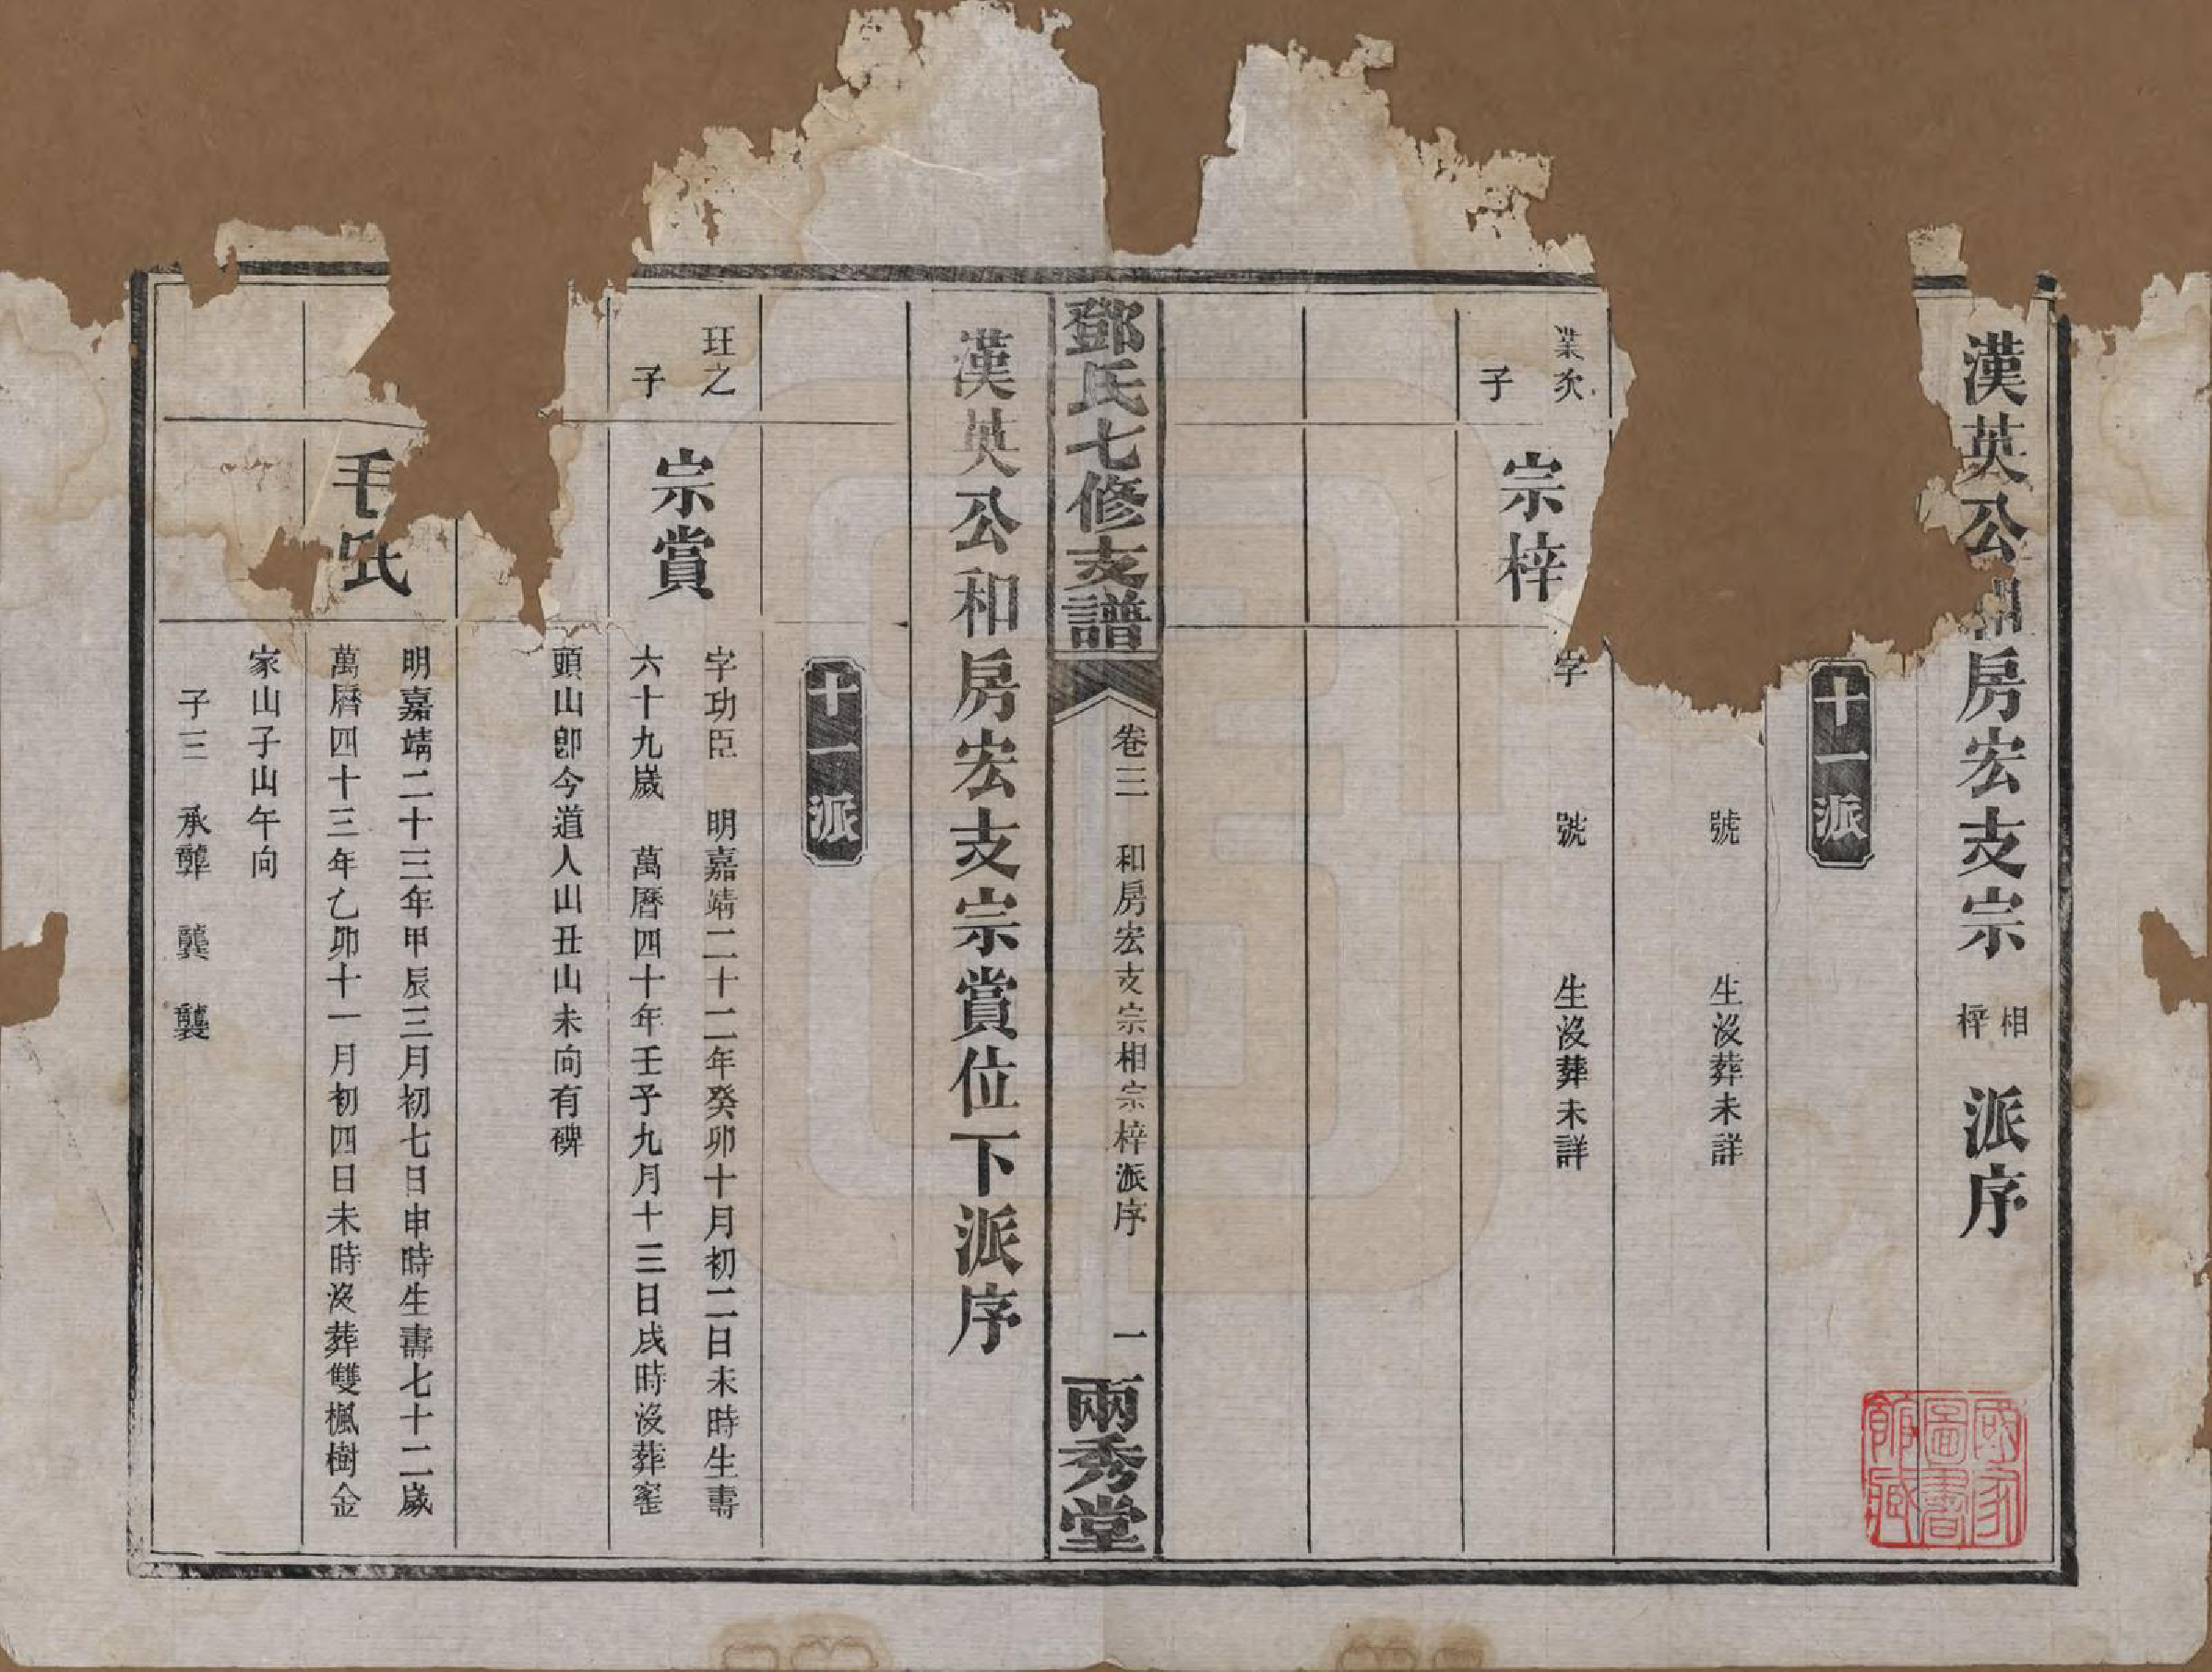 漢英公和房宏支宗相梓派序
十一派
號 生沒葬未詳
業次子
宗梓
字 號 生沒葬未詳
鄧氏七修支譜
卷三 和房宏支宗相宗梓派序 一
兩秀堂
漢英公和房宏支宗賞位下派序
十一派
玨之子
宗賞
字功臣 明嘉靖二十二年癸卯十月初二日未時生壽
六十九歲 萬曆四十年壬子九月十三日戌時沒葬窰
頭山卽今道人山丑山未向有碑
毛氏
明嘉靖二十三年甲辰三月初七日申時生壽七十二歲
萬曆四十三年乙卯十一月初四日未時沒葬雙楓樹金
家山子山午向
子三 承龏 龔 襲
國家圖書館藏